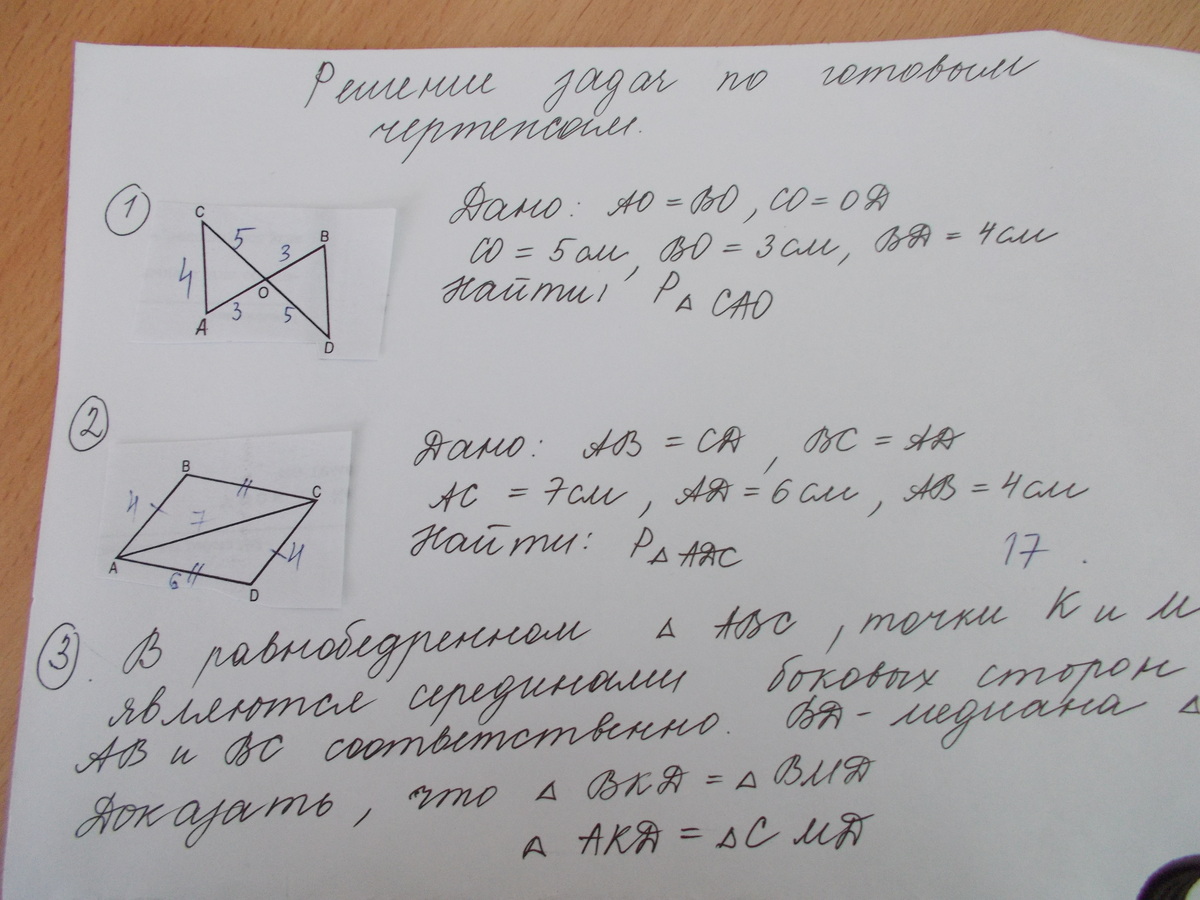 Решение задач по готовым
чертежам.
1
C
5
B
3
4
O
A
3
5
D
Дано: AO = BO, CO = OD
CO = 5 см, BO = 3 см, BD = 4 см
Найти: P△CAO
2
B
C
4
7
4
A
6
D
Дано: AB = CD, BC = AD
AC = 7 см, AD = 6 см, AB = 4 см
Найти: P△ADC
17.
3. В равнобедренном △ ABC, точки K и M
являются серединами боковых сторон
AB и BC соответственно. BD - медиана △
Доказать, что △ BKD = △ BMD
△ AKD = △CMD